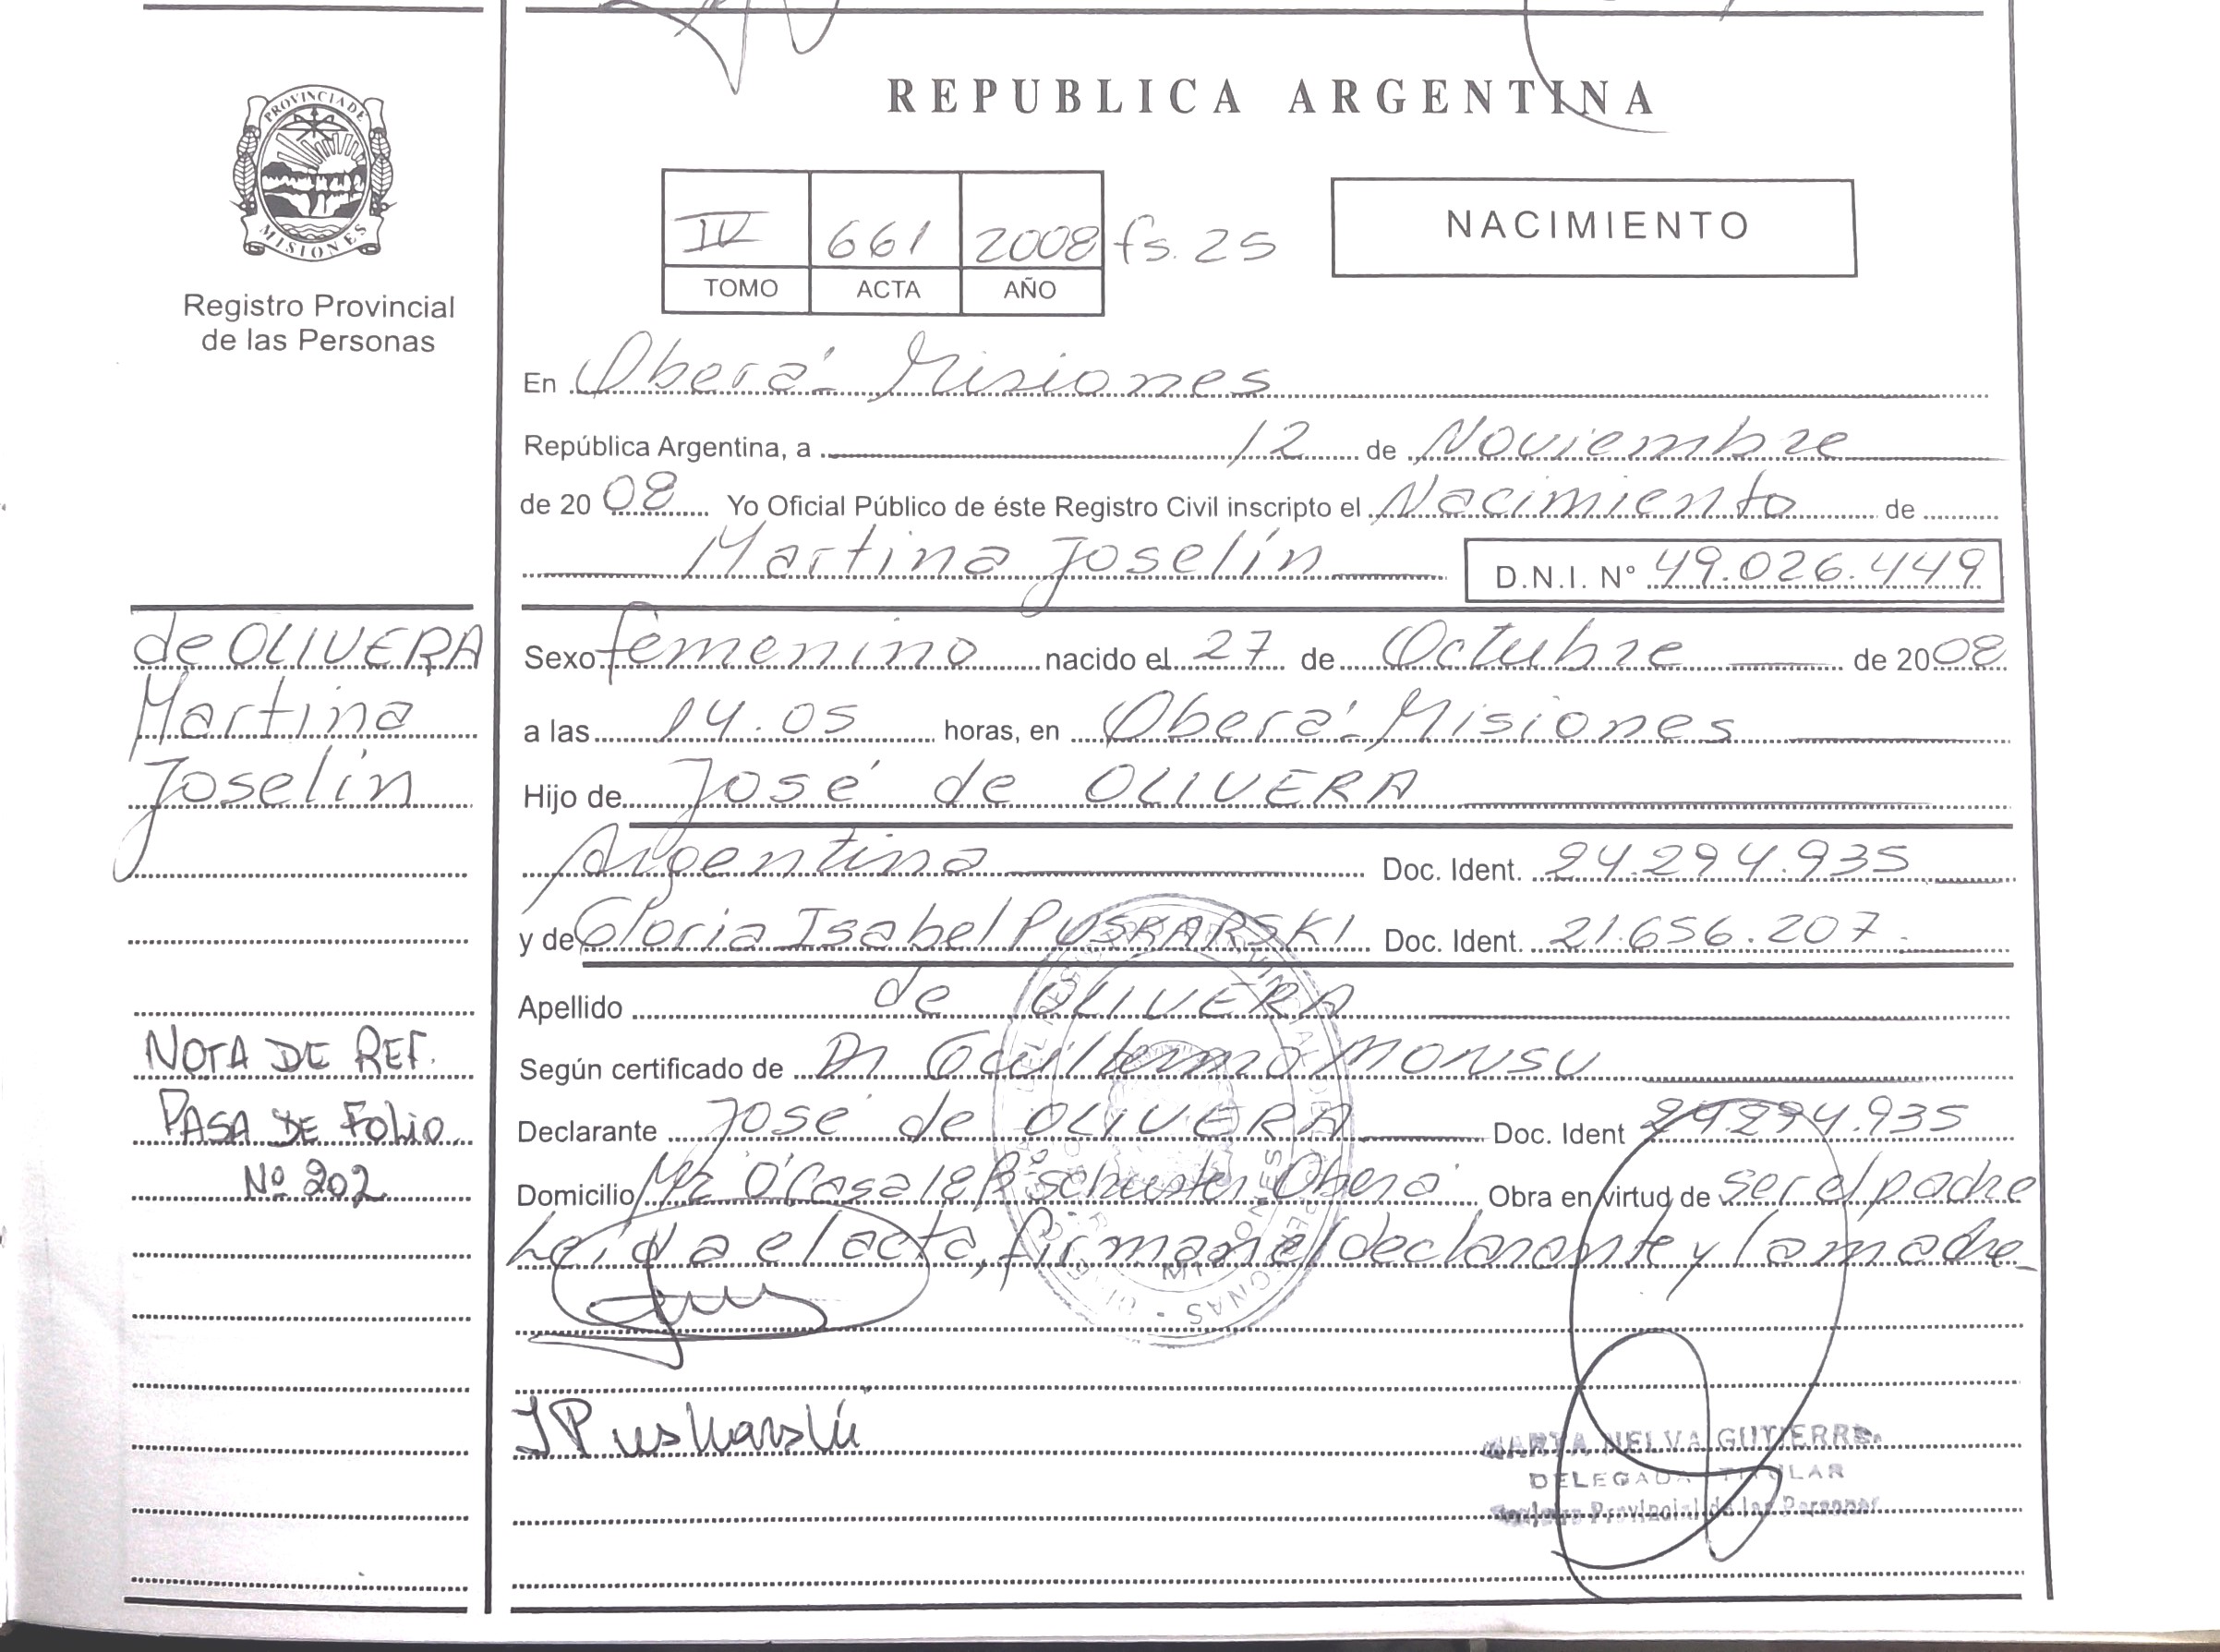 REPUBLICA ARGENTINA
PROVINCIA DE
MISIONES
Registro Provincial
de las Personas
IV 661 2008 fs. 25
TOMO ACTA AÑO
NACIMIENTO
En Oberá - Misiones
República Argentina, a 12 de Noviembre
de 2008 Yo Oficial Público de éste Registro Civil inscripto el Nacimiento de
Martina Joselín D.N.I. N° 49.026.449
de OLIVERA
Martina
Joselín
Sexo femenino nacido el 27 de Octubre de 2008
a las 14.05 horas, en Oberá - Misiones
Hijo de José de OLIVERA
Argentina Doc. Ident. 24.294.935
y de Gloria Isabel PUSKARSKI Doc. Ident. 21.656.207.-
Apellido de OLIVERA
Según certificado de Dr Guillermo MONSU
Declarante José de OLIVERA Doc. Ident 24.294.935
Domicilio Oberá Obra en virtud de ser el padre
Leída el acta, firman el declarante y la madre_
NOTA DE REF.
PASA DE FOLIO
Nº 202
I Puskarski
MARTA NELVA GUTIERRE
DELEGADA TITULAR
Provincial de las Personas